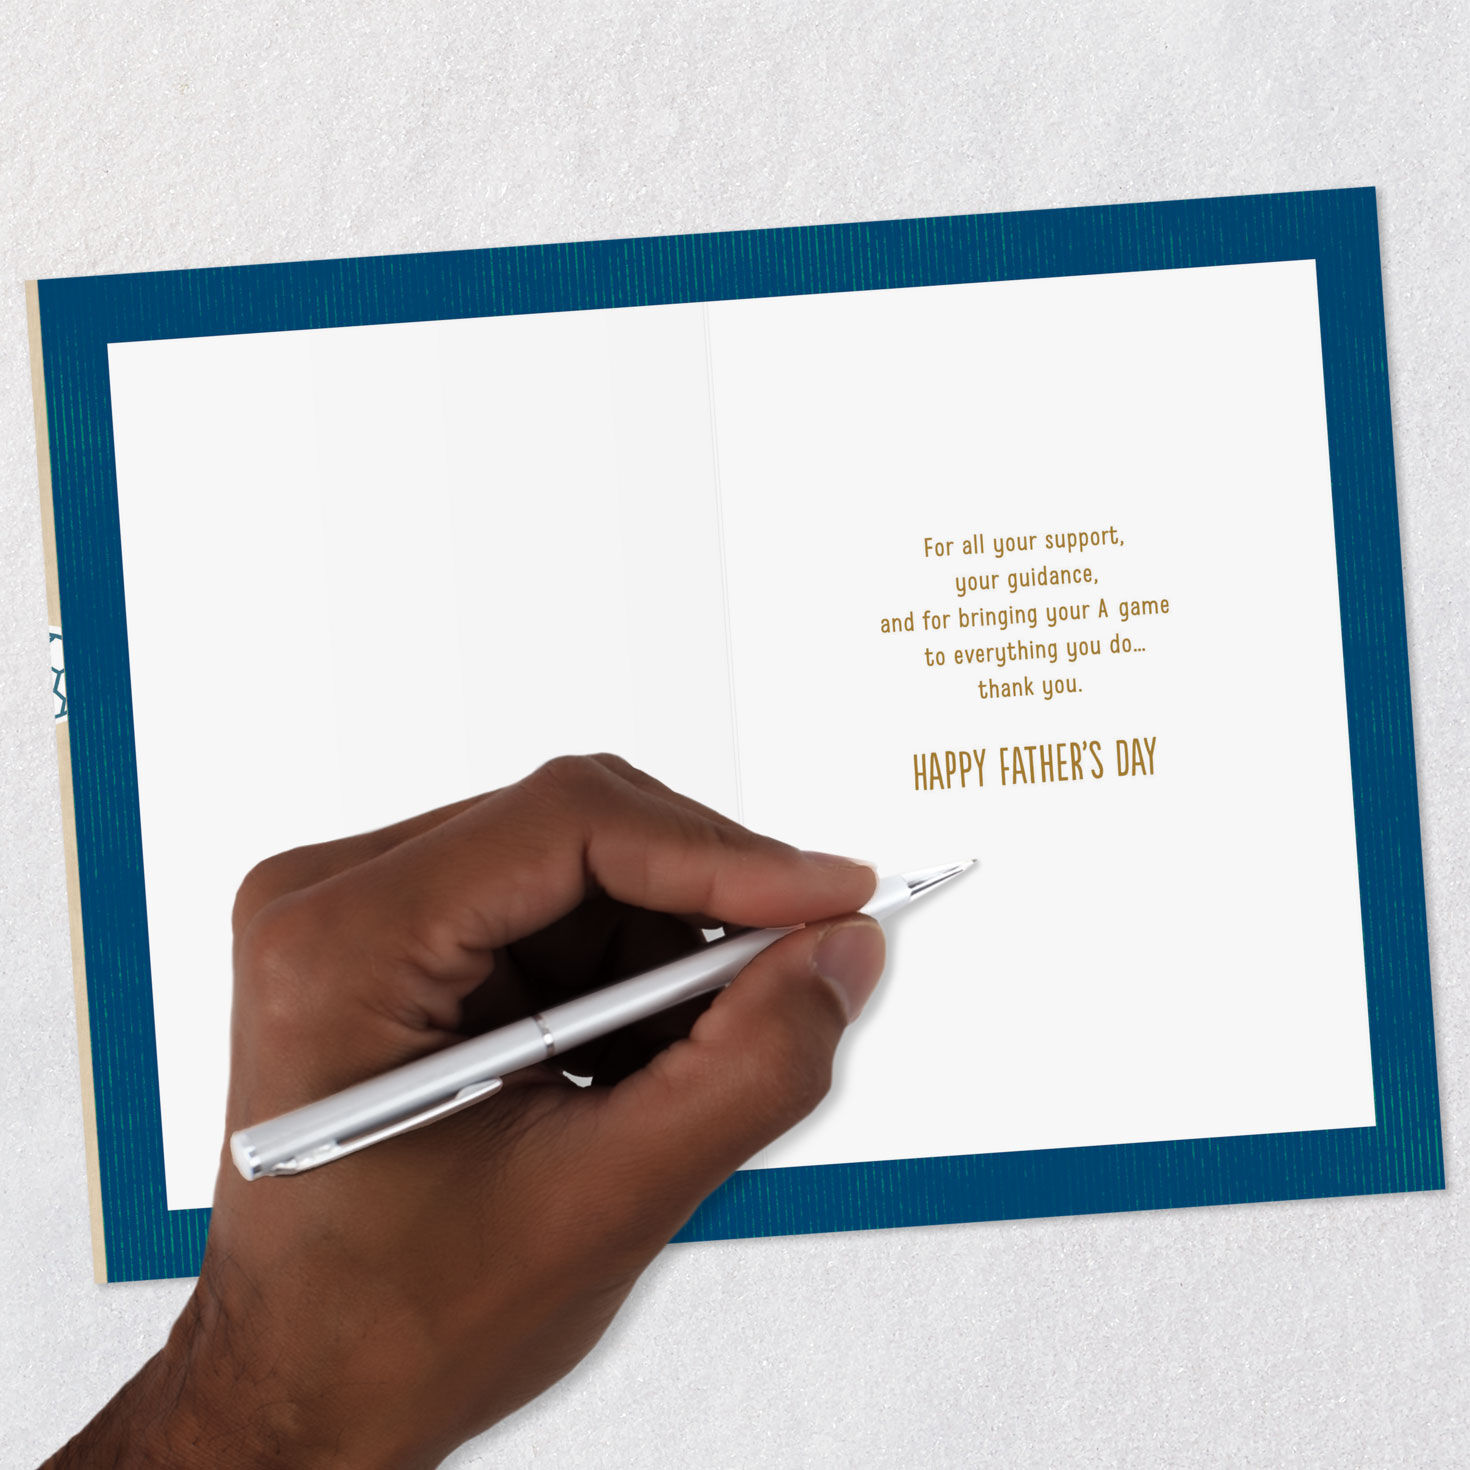 For all your support,
your guidance,
and for bringing your A game
to everything you do...
thank you.
HAPPY FATHER'S DAY